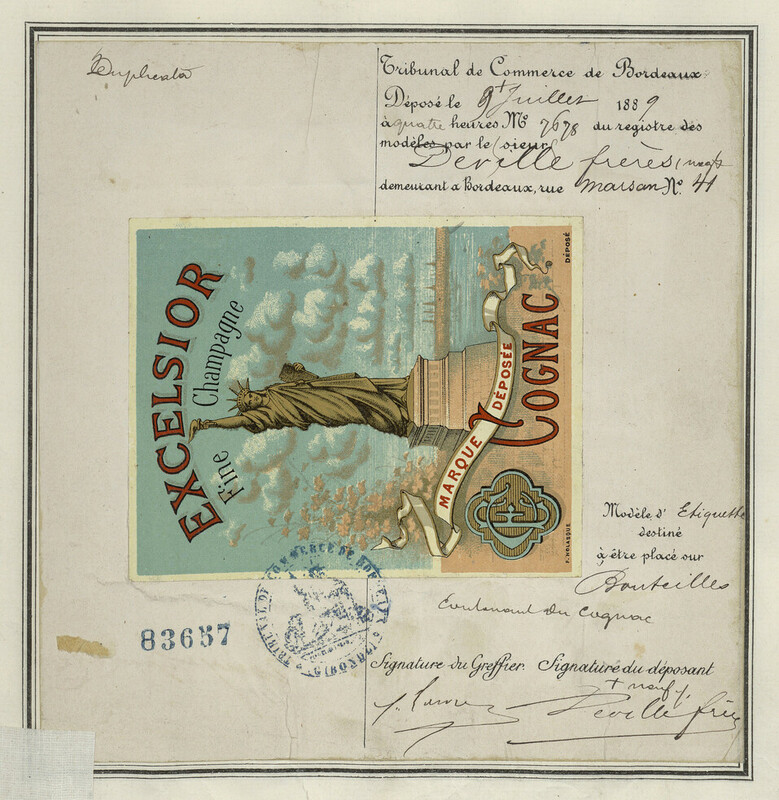 Duplicata
Tribunal de Commerce de Bordeaux
Déposé le 9 Juillet 1889
à quatre heures No 7678 du registre des
modèles par le sieur
Deville frères
demeurant à Bordeaux, rue Marsan No. 41
EXCELSIOR
Fine Champagne
MARQUE DÉPOSÉE
COGNAC
DÉPOSÉ
F. NOLASQUE
Modèle d'Etiquette
destiné
à être placé sur
Bouteilles
Contenant du Cognac
TRIBUNAL DE COMMERCE DE BORDEAUX
83657
Signature du Greffier. Signature du déposant
+ neuf
Deville frères